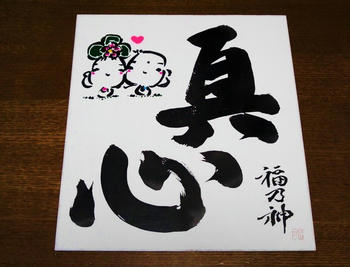 真心
福乃神